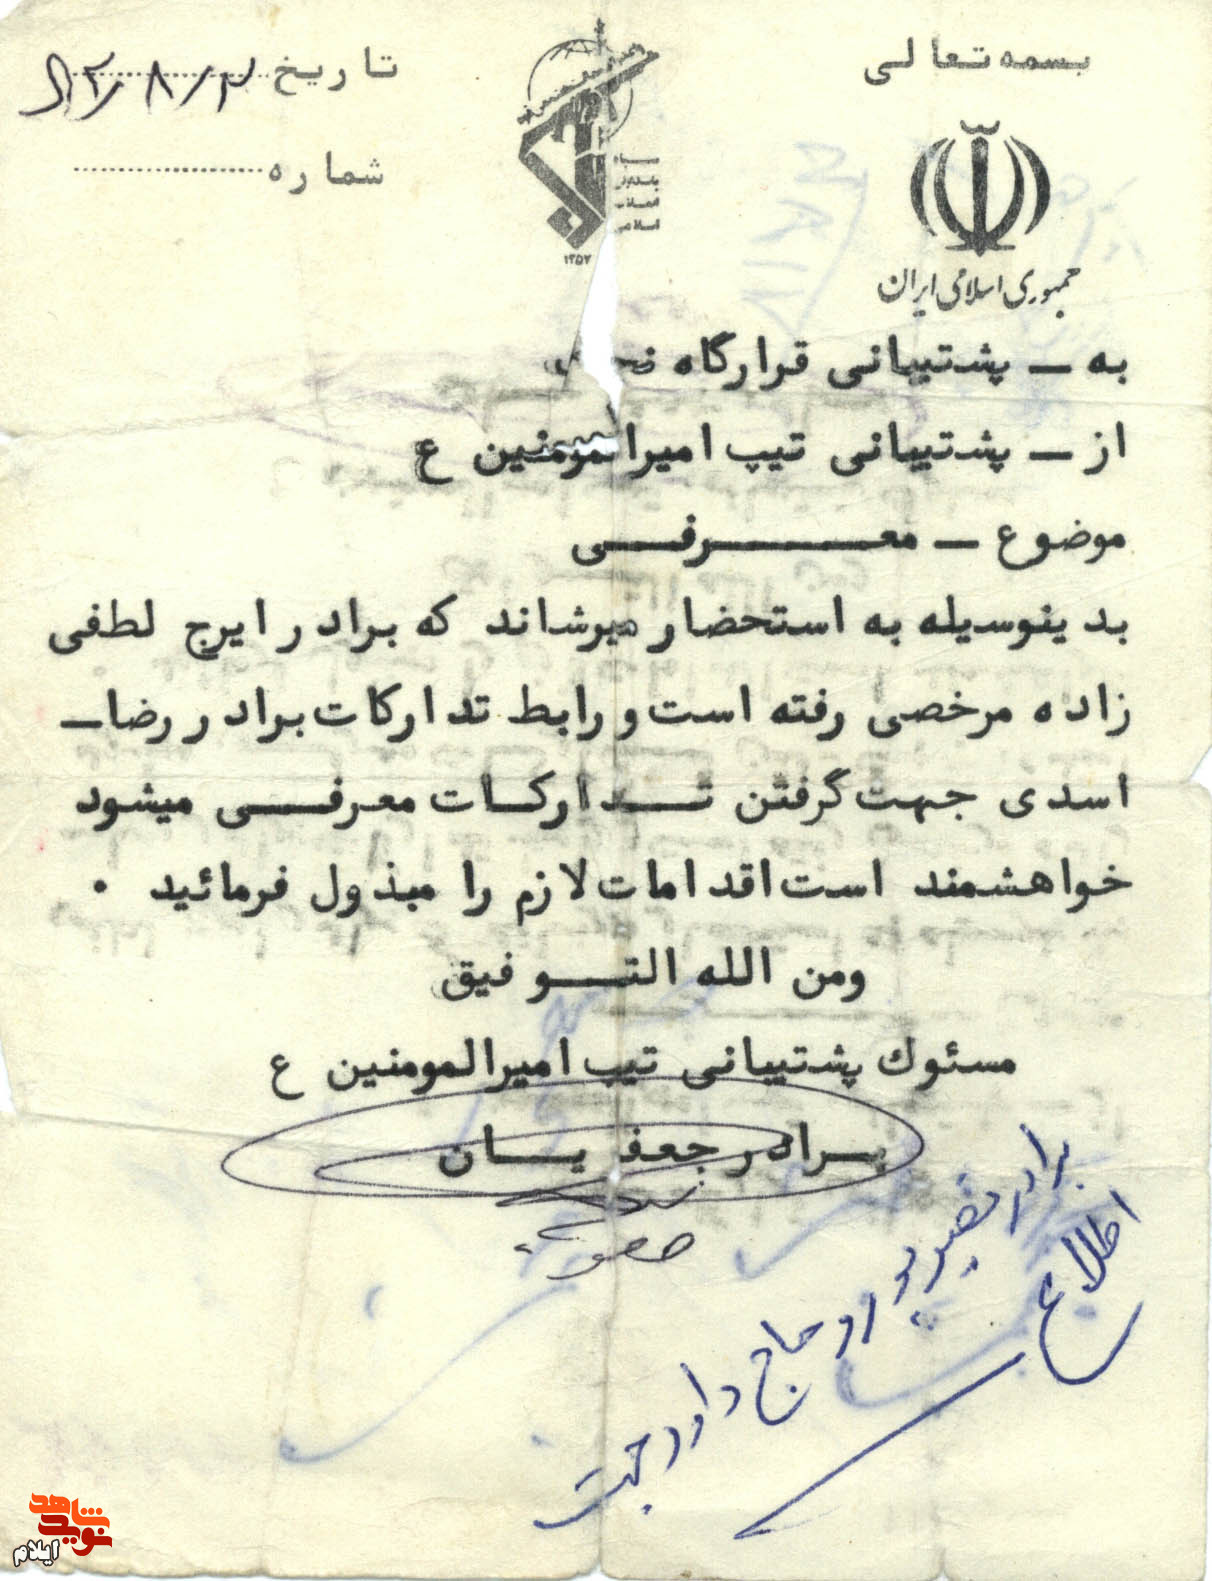 بسمه تعالی
جمهوری اسلامی ایران
سپاه
پاسداران
انقلاب
اسلامی
۱۳۵۷
تاریخ ۶۲/۸/۳
شماره
به ــ پشتیبانی قرارگاه
از ــ پشتیبانی تیپ امیرالمومنین ع
موضوع ــ معرفی
بدینوسیله به استحضار میرشاند که برادر ایرج لطفی
زاده مرخصی رفته است و رابط تدارکات برادر رضا ــ
اسدی جهت گرفتن تدارکات معرفی میشود
خواهشمند است اقدامات لازم را مبذول فرمائید ۰
ومن الله التوفیق
مسئوك پشتیبانی تیپ امیرالمومنین ع
برادر جعفریان
برادر نصیرپور و حاج داود جهت
اطلاع
نوید شاهد
ایلام